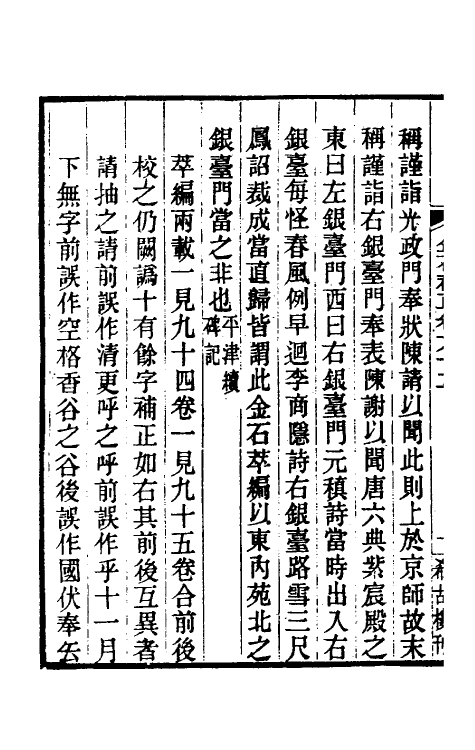 稱謹詣光政門奉狀陳請以聞此則上於京師故末
稱謹詣右銀臺門奉表陳謝以聞唐六典紫宸殿之
東曰左銀臺門西曰右銀臺門元稹詩當時出入右
銀臺每怪春風例早迴李商隱詩右銀臺路雪三尺
鳳詔裁成當直歸皆謂此金石萃編以東內苑北之
銀臺門當之非也平津續碑記
萃編兩載一見九十四卷一見九十五卷合前後
校之仍闕譌十有餘字補正如右其前後互異者
請抽之請前誤作清更呼之呼前誤作乎十一月
下無字前誤作空格香谷之谷後誤作國伏奉